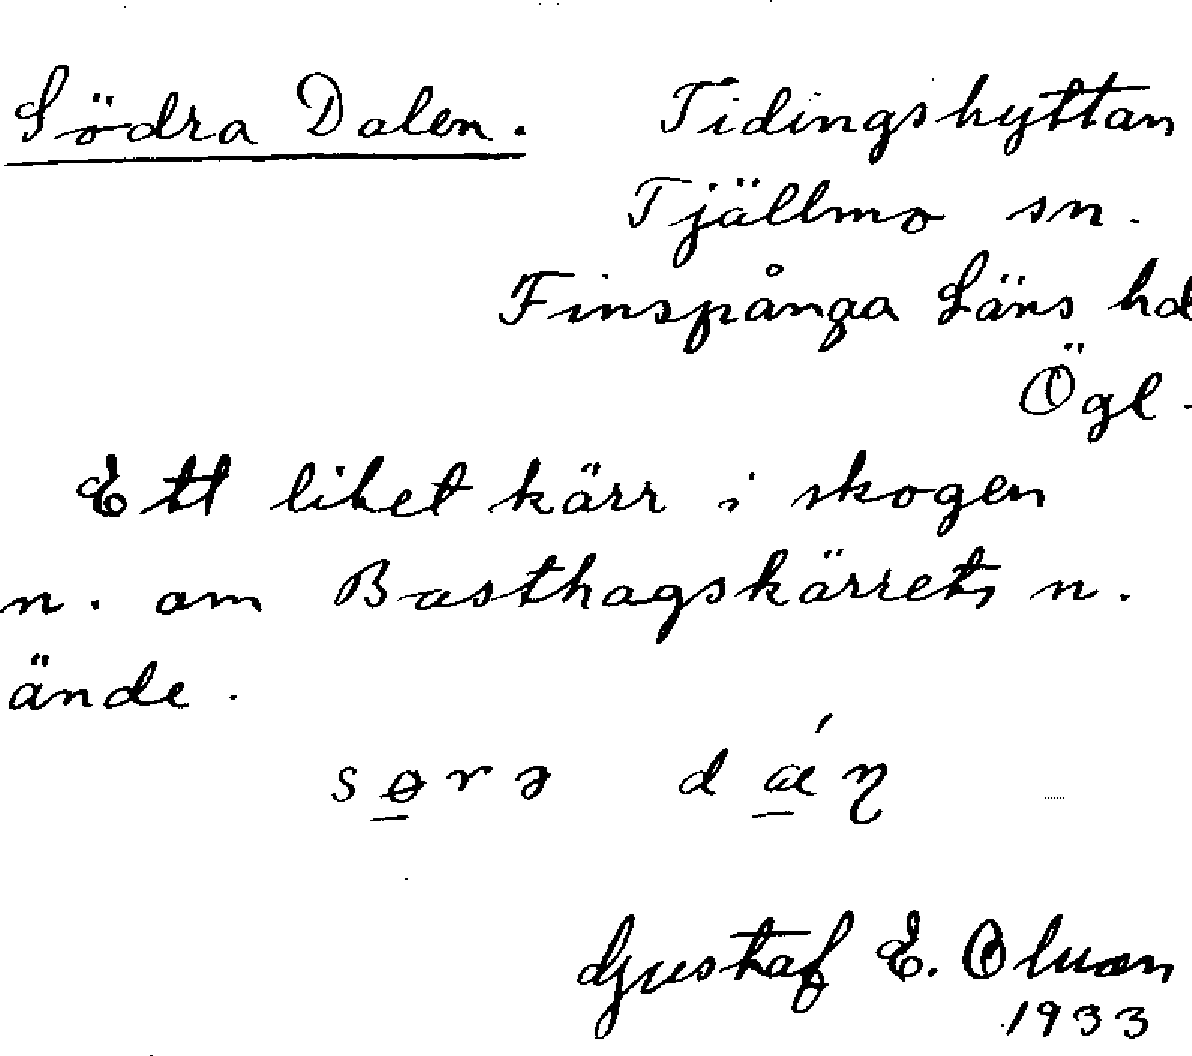 Södra Dalen. Tidingshyttan
Tjällmo sn.
Finspånga Läns hd
Ögl.
Ett litet kärr i skogen
n. om Basthagskärrets n.
ände.
Gustaf E.
1933